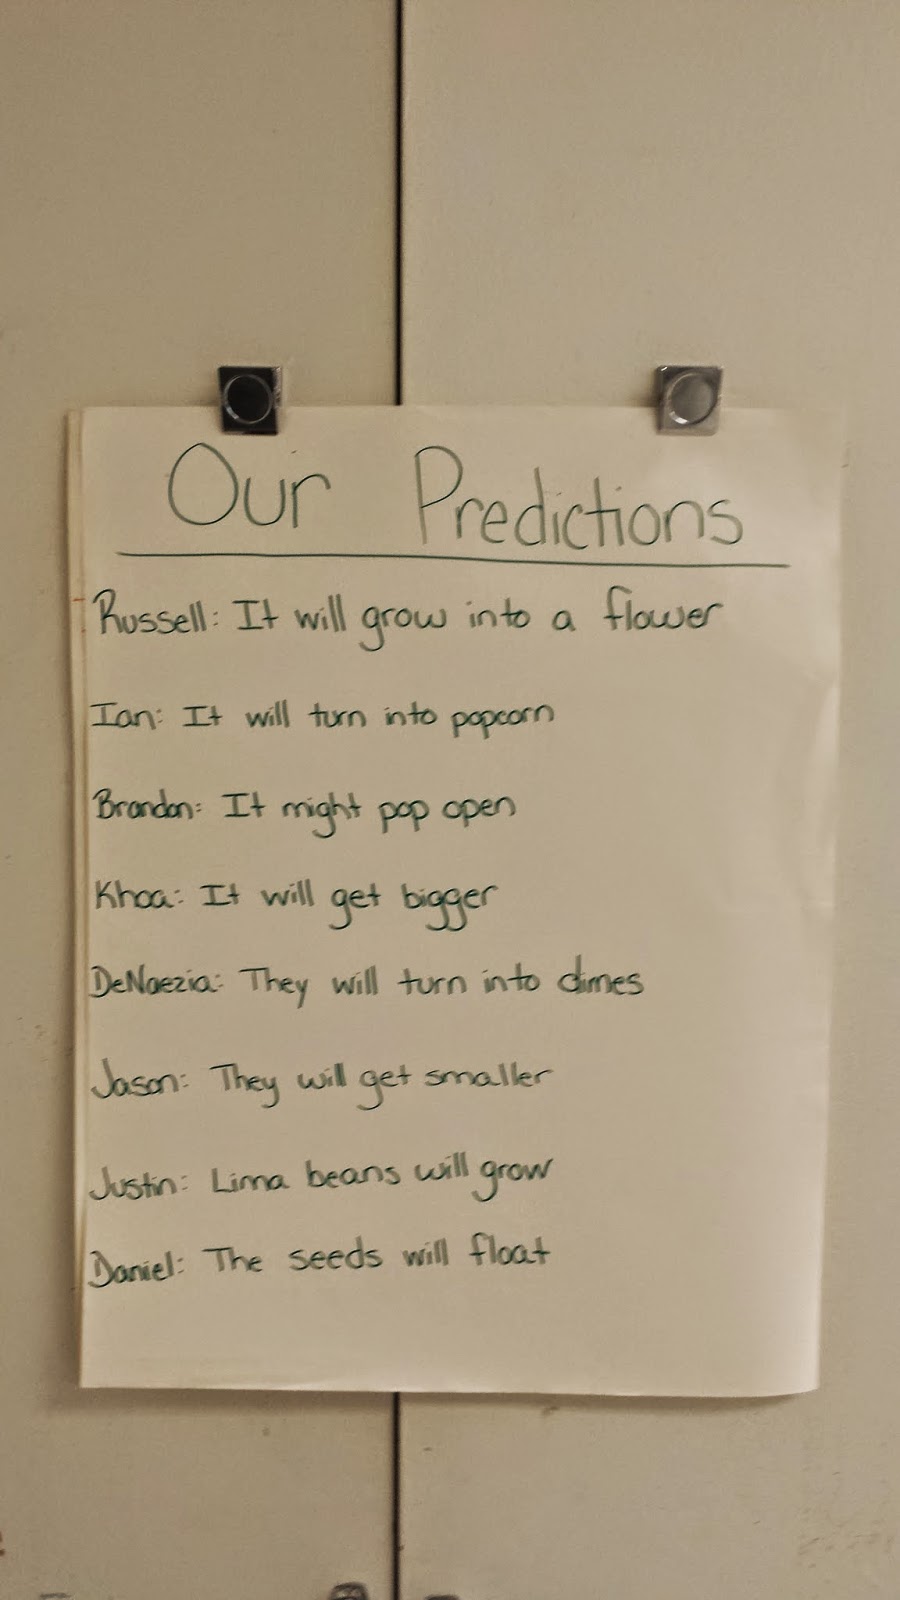 Our Predictions
Russell: It will grow into a flower
Ian: It will turn into popcorn
Brandon: It might pop open
Khoa: It will get bigger
DeNaezia: They will turn into dimes
Jason: They will get smaller
Justin: Lima beans will grow
Daniel: The seeds will float